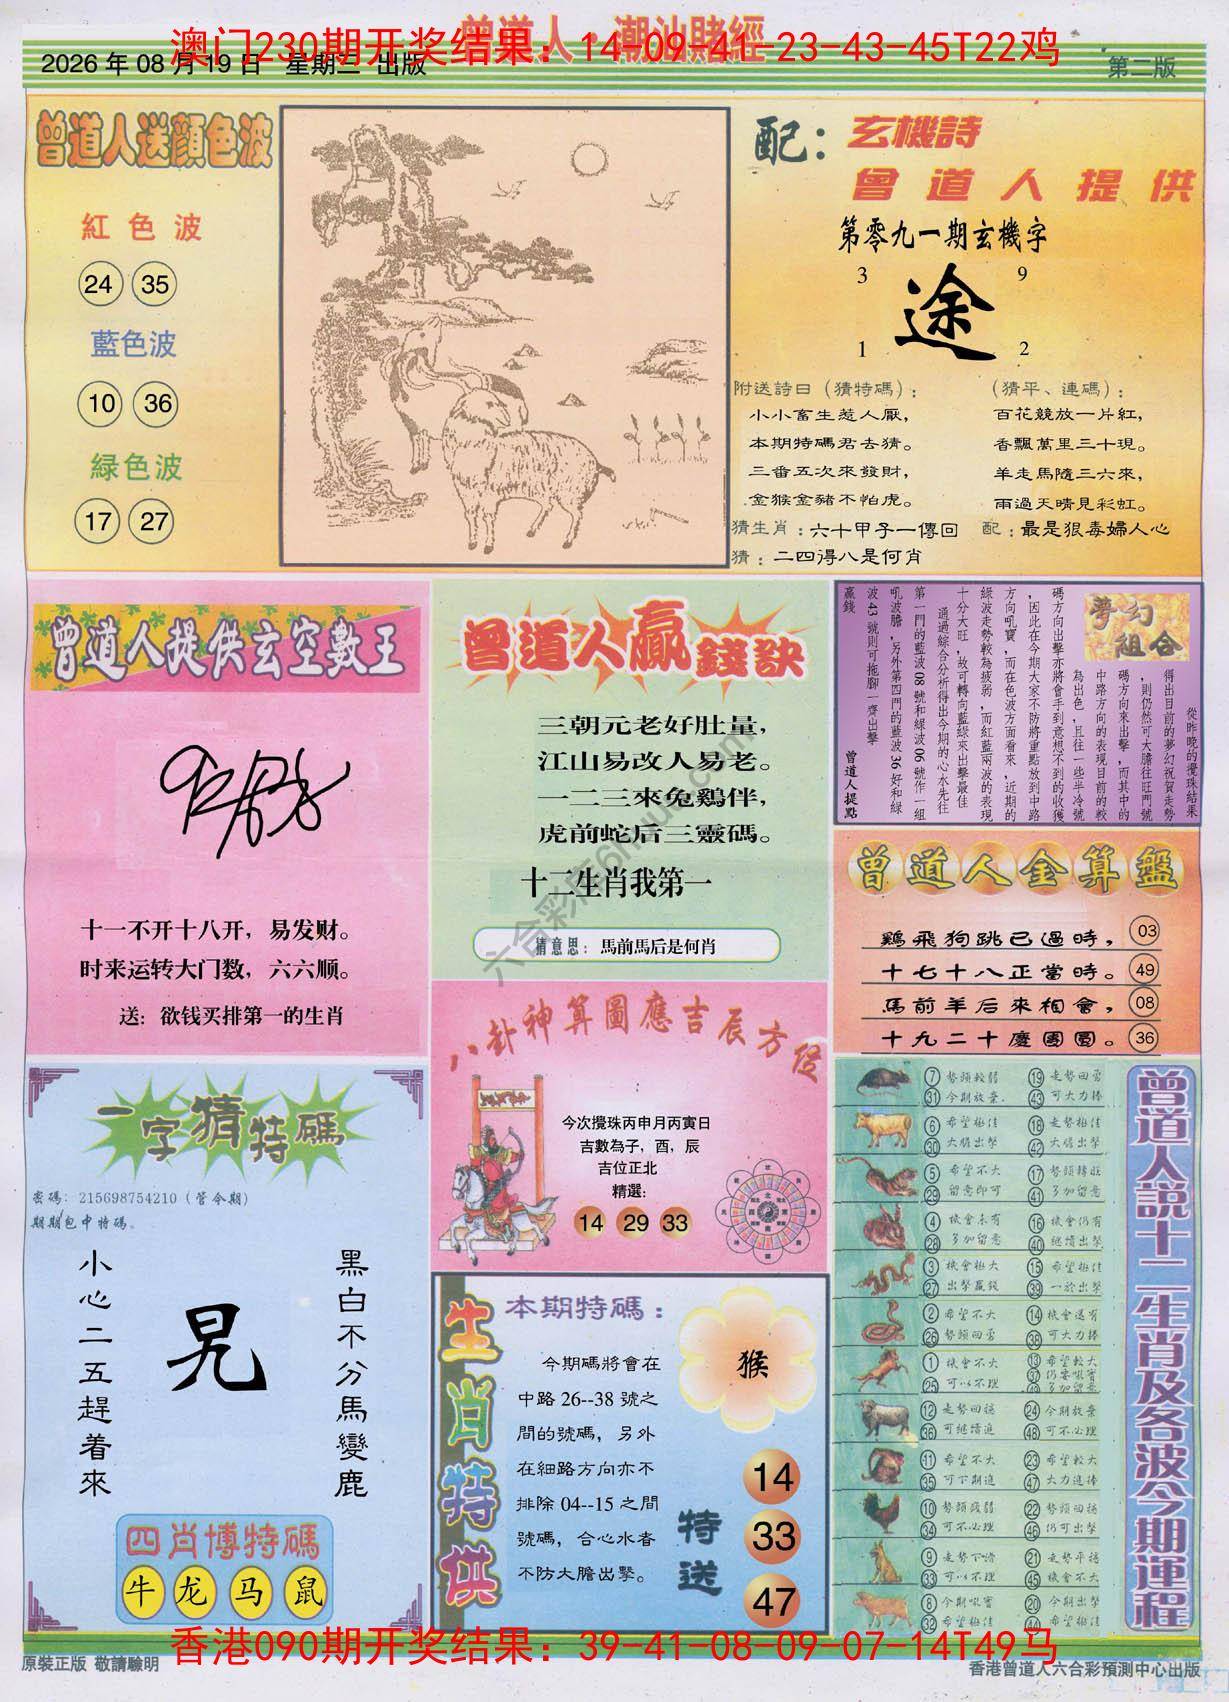 曾道人·潮汕賭經
澳门230期开奖结果：14-09-41-23-43-45T22鸡
2026 年 08 月 19 日 星期三 出版
第二版
曾道人送顏色波
紅色波
24 35
藍色波
10 36
緑色波
17 27
配：玄機詩
曾道人提供
第零九一期玄機字
3 9
途
1 2
附送詩曰（猜特碼）：
小小畜生惹人厭，
本期特碼君去猜。
三番五次來發財，
金猴金豬不怕虎。
（猜平、連碼）：
百花競放一片紅，
香飄萬里三十現。
羊走馬隨三六來，
雨過天晴見彩虹。
猜生肖：六十甲子一傳回
配：最是狠毒婦人心
猜：二四得八是何肖
曾道人提供玄空數王
十一不开十八开，易发财。
时来运转大门数，六六顺。
送：欲钱买排第一的生肖
曾道人贏錢訣
三朝元老好肚量，
江山易改人易老。
一二三來兔鷄伴，
虎前蛇后三靈碼。
十二生肖我第一
猜意思：馬前馬后是何肖
夢幻組合
從昨晚的攪珠結果
得出目前的夢幻祝賀走勢
，則仍然可大膽往旺門號
碼方向來出擊，而其中的
中路方向的表現目前的較
為出色，且往一些半冷號
碼方向出擊亦將會手到意想不到的收獲
，因此在今期大家不防將重點放到中路
方向吼寶，而在色波方面看來，近期的
綠波走勢較為疲弱，而紅藍兩波的表現
十分大旺，故可轉向藍綠來出擊最佳
通過綜合分析得出今期的心水先往
第一門的藍波08號和緑波06號作一組
吼波膽，另外第四門的藍波36好和綠
波43號則可拖腳一齊出擊
贏錢
曾道人提點
曾道人金算盤
鷄飛狗跳已過時， 03
十七十八正當時。 49
馬前羊后來相會， 08
十九二十慶團圓。 36
八卦神算圖應吉辰方位
今次攪珠丙申月丙寅日
吉數為子，酉，辰
吉位正北
精選：
14 29 33
一字猜特碼
密碼：215698754210（管今期）
期期包中特碼。
小心二五趕着來
黑白不分馬變鹿
四肖博特碼
牛 龙 马 鼠
生肖特供
本期特碼：
今期碼將會在
中路 26--38 號之
間的號碼，另外
在細路方向亦不
排除 04--15 之間
號碼，合心水者
不防大膽出擊。
猴
特送
14
33
47
曾道人説十二生肖及各波今期運程
7 勢頭較弱 19 走勢回勇
31 今期放棄 43 可大力捧
6 希望極佳 18 走勢極佳
30 大膽出擊 42 大膽出擊
5 希望不大 17 勢頭轉旺
29 留意即可 41 多加留意
4 機會未有 16 機會仍有
28 多加留意 40 繼續出擊
3 機會極大 15 希望極佳
27 出擊贏錢 39 一於出擊
2 希望不大 14 機會還有
26 勢頭回勇 38 可大力捧
1 機會不大 13 希望較大
25 可以不理 37 仍要吼實
49 多加留意
12 走勢回穩 24 今期放棄
36 可繼續追 48 可不必理
11 希望不大 23 希望較大
35 可下期追 47 大力追捧
10 勢頭疲弱 22 勢頭回穩
34 可不必理 46 仍可出擊
9 走勢下滑 21 走勢平穩
33 可以不理 45 機會不大
8 今期吼實 20 今期出擊
32 希望極佳 44 希望極佳
香港090期开奖结果：39-41-08-09-07-14T49马
原裝正版 敬請驗明
香港曾道人六合彩預測中心出版